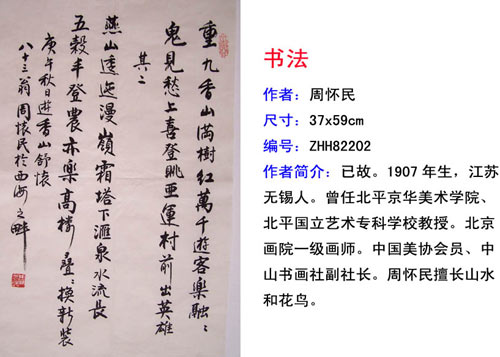 重九香山满樹红萬千遊客樂融々
鬼見愁上喜登眺亜運村前出英雄
其二
燕山逶迤漫嶺霜塔下滙泉水流長
五穀丰登農亦樂高樓疊々換新装
庚午秋日遊香山舒懷
八十三翁周懷民於西海之畔
书法
作者：周怀民
尺寸：37x59cm
编号：ZHH82202
作者简介：已故。1907年生，江苏
无锡人。曾任北平京华美术学院、
北平国立艺术专科学校教授。北京
画院一级画师。中国美协会员、中
山书画社副社长。周怀民擅长山水
和花鸟。